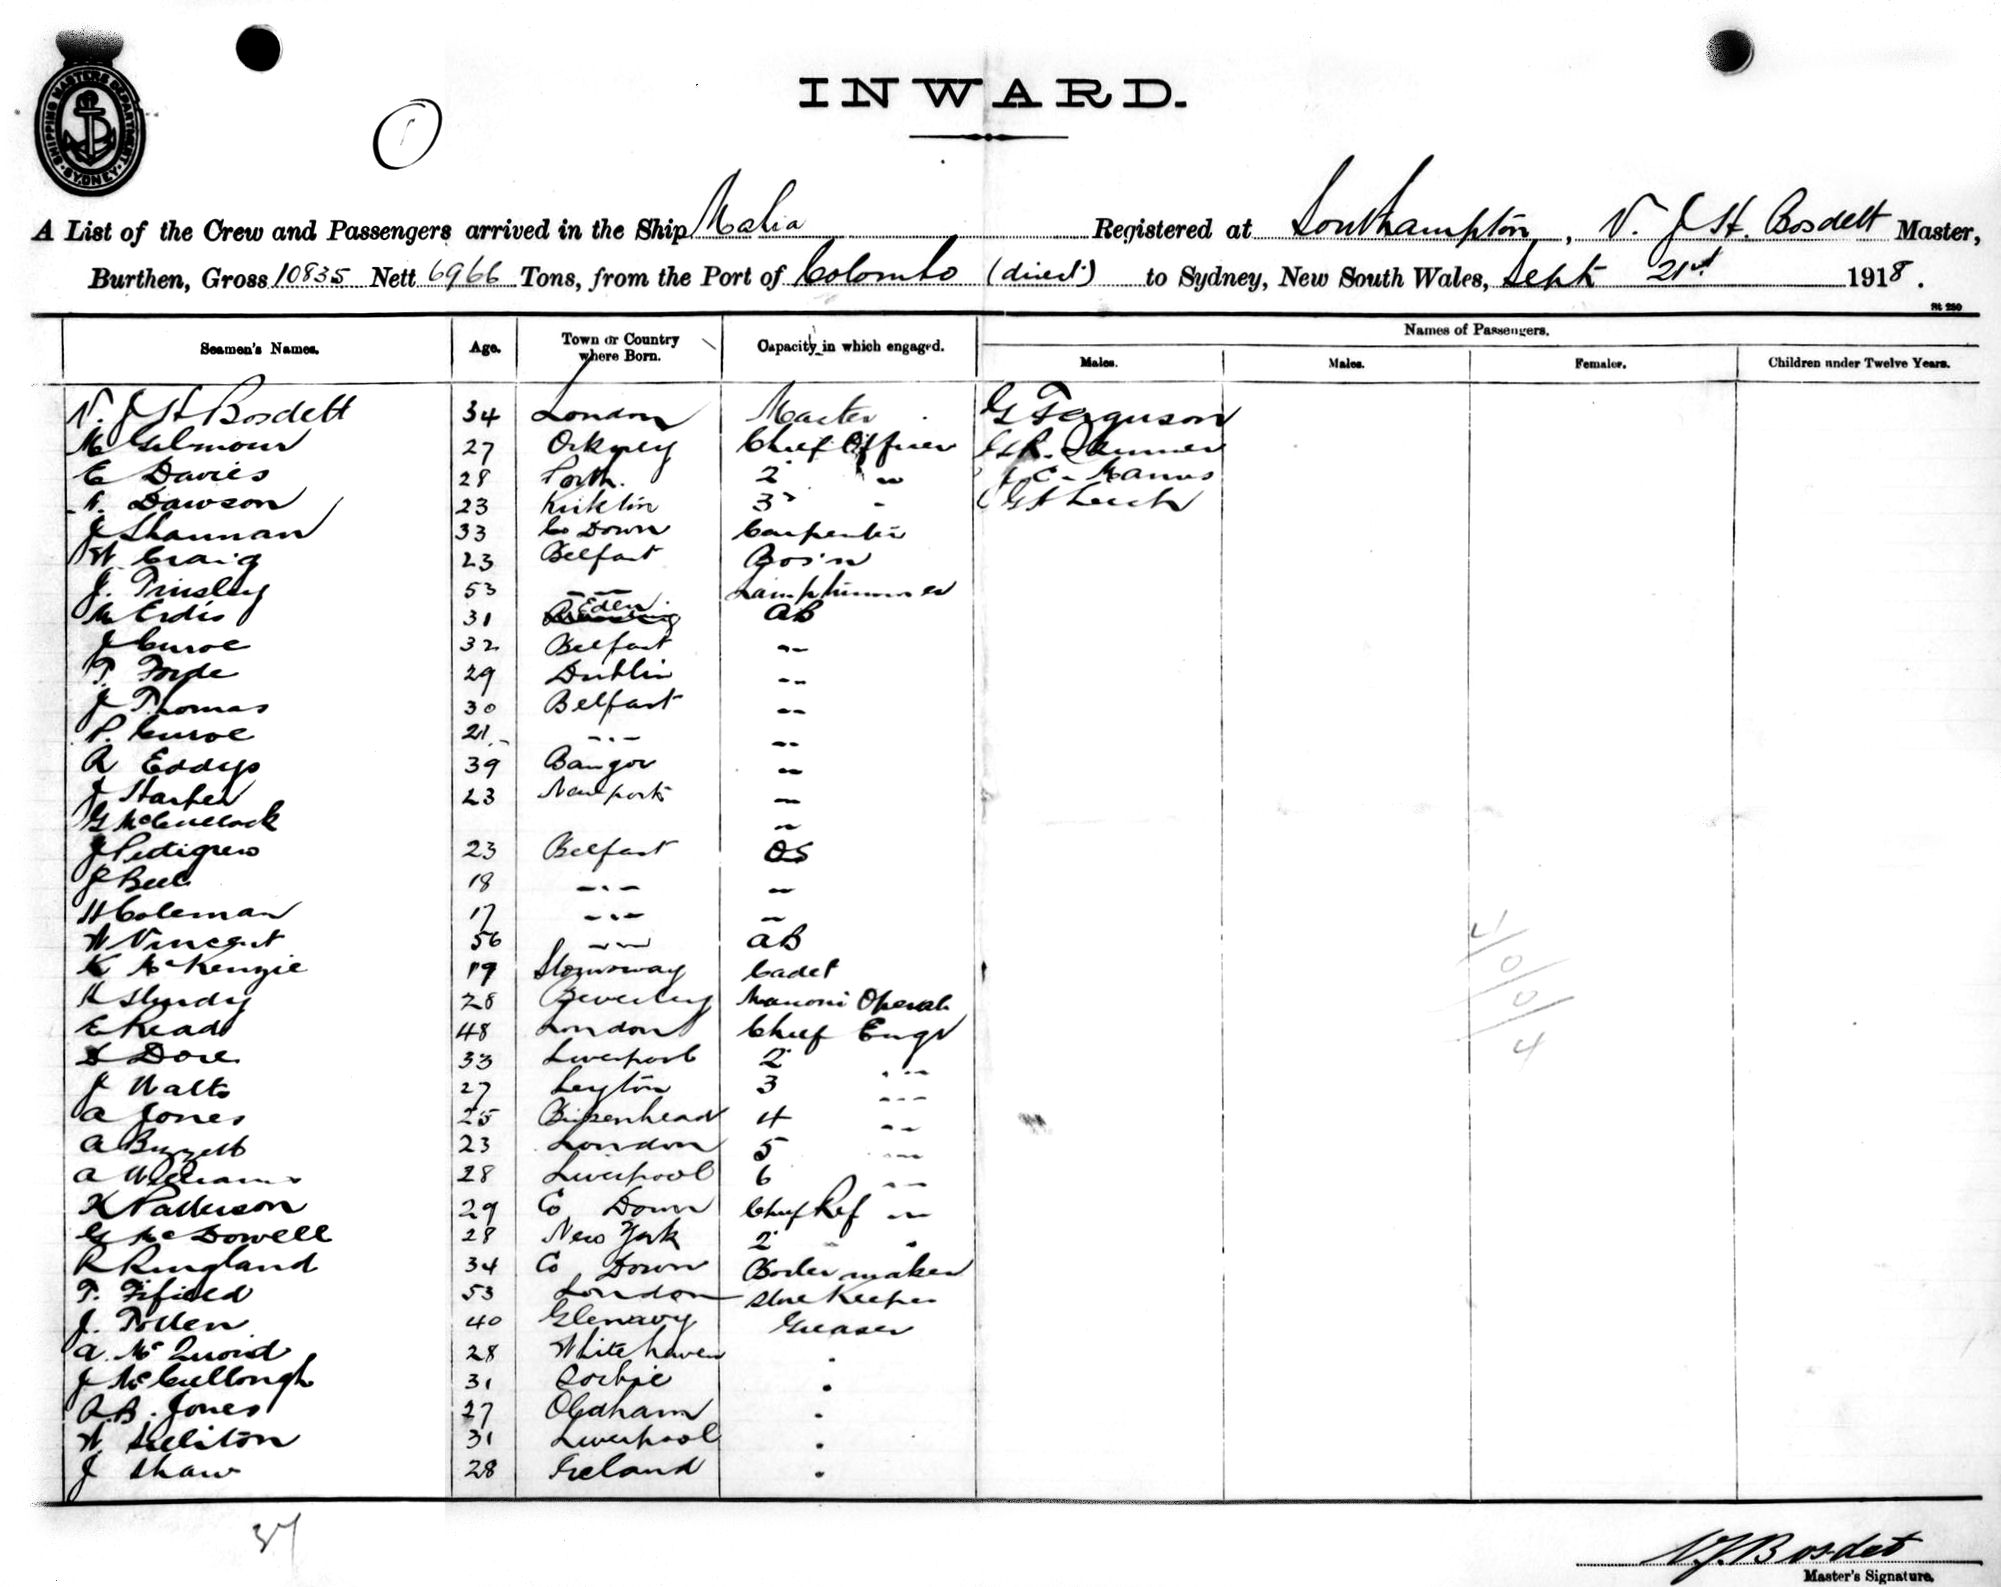 SHIPPING MASTERS DEPARTMENT SYDNEY
1
INWARD.
A List of the Crew and Passengers arrived in the Ship Malia Registered at Southampton, V. J St. Bosdett Master,
Burthen, Gross 10835 Nett 6966 Tons, from the Port of Colombo (direct) to Sydney, New South Wales, Sept 21st 1918.
Seamen's Names. Age. Town or Country where Born. Capacity in which engaged. Names of Passengers.
Males. Males. Females. Children under Twelve Years.
V. J St Bosdett 34 London Master G Ferguson
M Gilmour 27 Orkney Chief Officer
E Davies 28 Porth. 2 " Manns
Dawson 23 3 " G A Leech
J Shannan 33 Co Down Carpenter
W Craig 23 Belfast Bos'n
J. Tinsley 53 " Lamptrimmer
M Erdis 31 Eden AB
J Curoe 32 Belfast "
T. Forde 29 Dublin "
J Thomas 30 Belfast "
P. Curoe 21 " "
R Eddys 39 Bangor "
J Harper 23 Newport "
G McCullock "
J Pettigrew 23 Belfast OS
J Bell 18 " "
H Coleman 17 " "
W Vincent 56 " AB
K McKenzie 19 Stornoway Cadet
H Sturdy 28 Beverley Marconi Operatr
E Read 48 London Chief Engr
S Dore 33 Liverpool 2 "
J Watts 27 Leyton 3 "
A Jones 25 Birkenhead 4 "
A Buzzett 23 London 5 "
A Williams 28 Liverpool 6 "
H Patterson 29 Co Down Chief Ref "
G McDowell 28 New York 2 "
R Ringland 34 Co Down Boilermaker
T. Fifield 53 London Storekeeper
J. Totten 40 Glenavy Greaser
A. McQuoid 28 Whitehaven "
J McCullough 31 "
R.B. Jones 27 Oldham "
W. Silliton 31 Liverpool "
J Shaw 28 Ireland "
4/0/0/4
37
V J. Bosdet
Master's Signature.